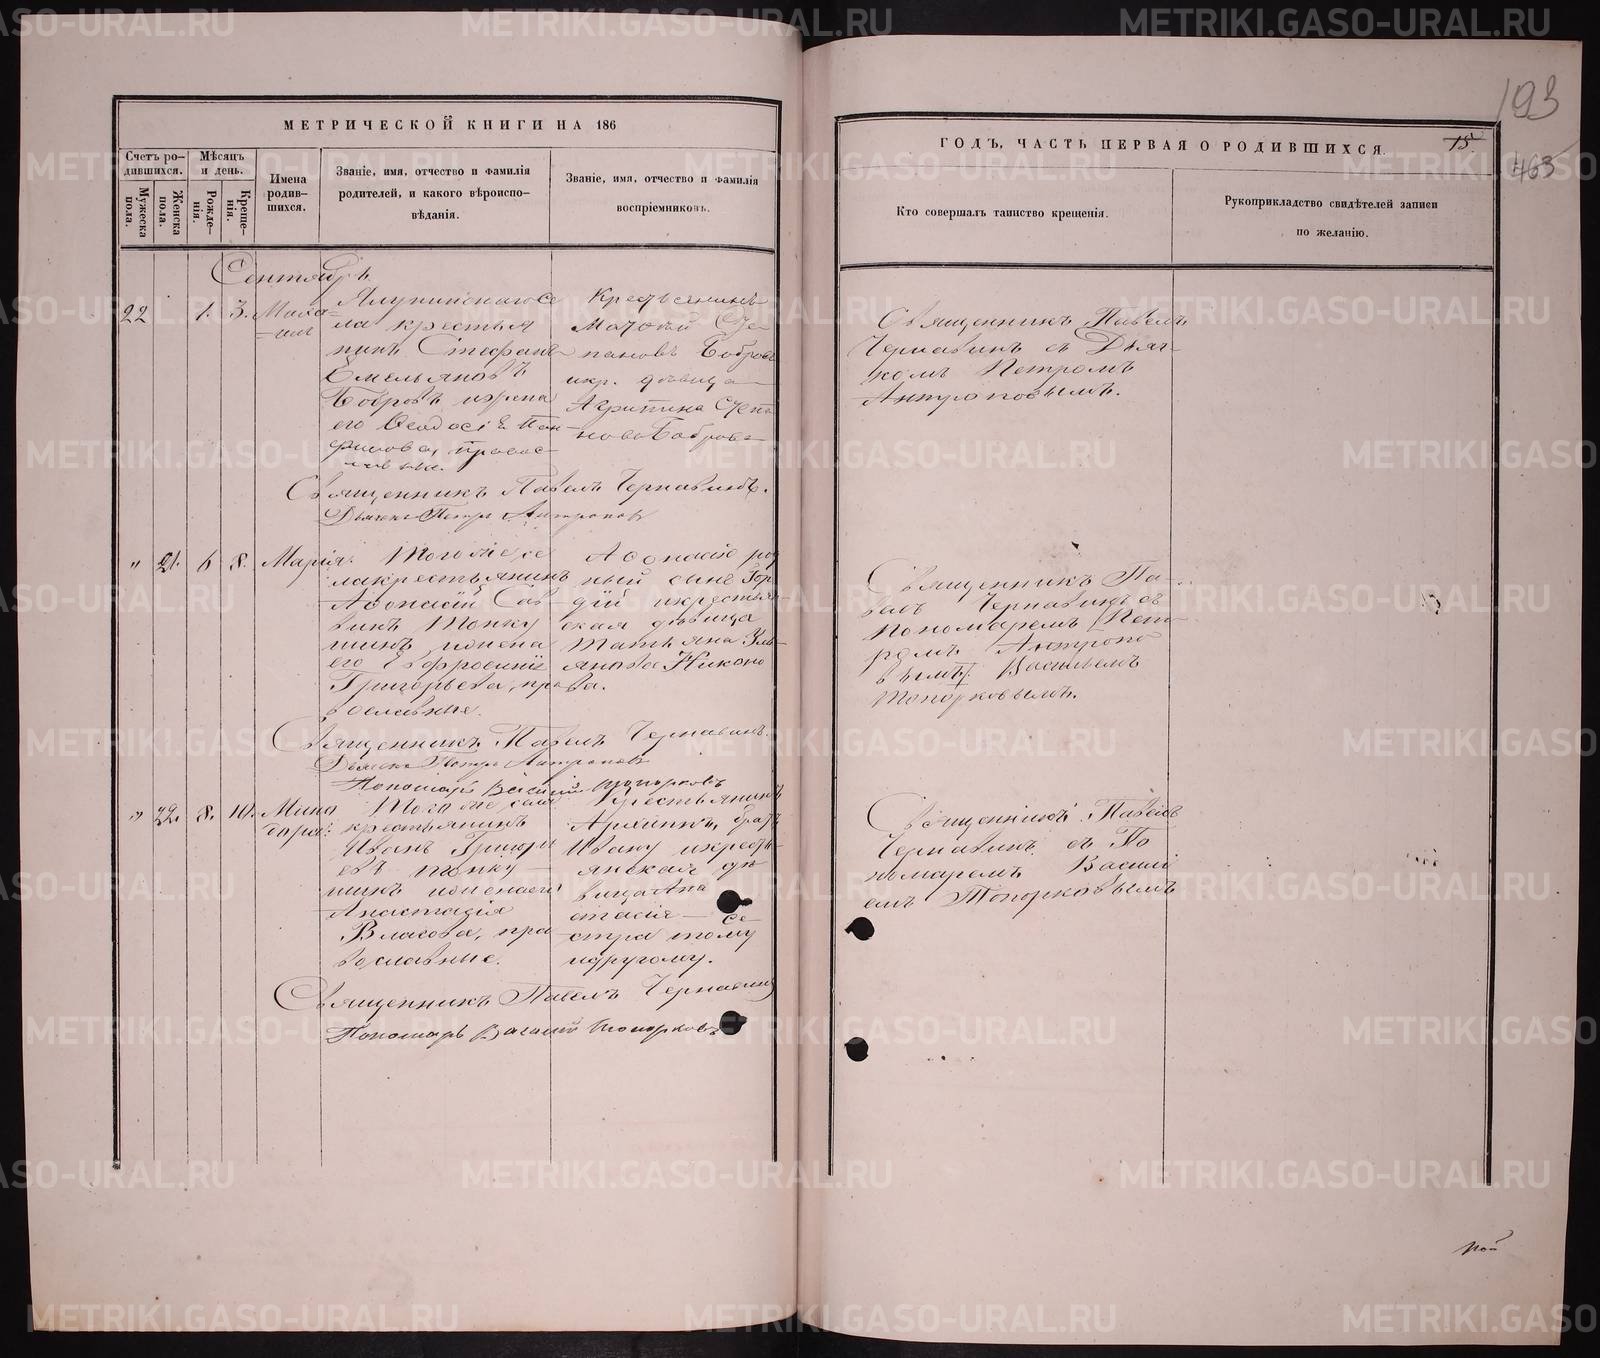 193
МЕТРИЧЕСКОЙ КНИГИ НА 186
ГОДЪ, ЧАСТЬ ПЕРВАЯ О РОДИВШИХСЯ.
15
463
Счетъ ро-
дившихся.
Мужеска
пола.
Женска
пола.
Мѣсяцъ
и день.
Рожде-
нія.
Креще-
нія.
Имена
родив-
шихся.
Званіе, имя, отчество и фамилія
родителей, и какого вѣроиспо-
вѣданія.
Званіе, имя, отчество и фамилія
воспріемниковъ.
Кто совершалъ таинство крещенія.
Рукоприкладство свидѣтелей записи
по желанію.
Сентябрь
22
1. 3.
се
ла крестья
нинъ Стефанъ
Емельяновъ
Бобровъ и жена
его Ѳеодосія Пан-
филова, правос-
лавные.
Крестьянинъ
Сте-
пановъ Бобровъ
и кр. дѣвица
Агрипина Степа
нова Боброва
Священникъ Павелъ
Чернавинъ съ Дьяч-
комъ Петромъ
Антроповымъ.
Священникъ Павелъ Чернавинъ.
Дьячекъ Петръ Антроповъ
" 21. 6 8. Марія.
Того же се
ла крестьянинъ
Аѳонасій Сав
винъ
шинъ и жена
его Евфросинія
Григорьева, пра
вославные.
Аѳонасію род
ный сынъ Гор
дій и крестьян-
ская дѣвица
Татьяна Уль-
янова Никоно
ва.
Священникъ Па-
велъ Чернавинъ съ
Пономаремъ Пет-
ромъ Антропо
вымъ Васильемъ
Топорковымъ.
Священникъ Павелъ Чернавинъ.
Дьячекъ Петръ Антроповъ
Пономарь Василій Топорковъ
" 22. 8. 10. Мино
дора.
Того же села
крестьянинъ
Иванъ Григорь
евъ
шинъ и жена его
Анастасія
Власова, пра
вославные.
Крестьянинъ
братъ
Ивану и кресть
янская дѣ
вица Ана
стасія — се-
стра тому
и другому.
Священникъ Павелъ
Чернавинъ съ По
номаремъ Василі
емъ Топорковымъ
Священникъ Павелъ Чернавинъ
Пономарь Василій Топорковъ
METRIKI.GASO-URAL.RU